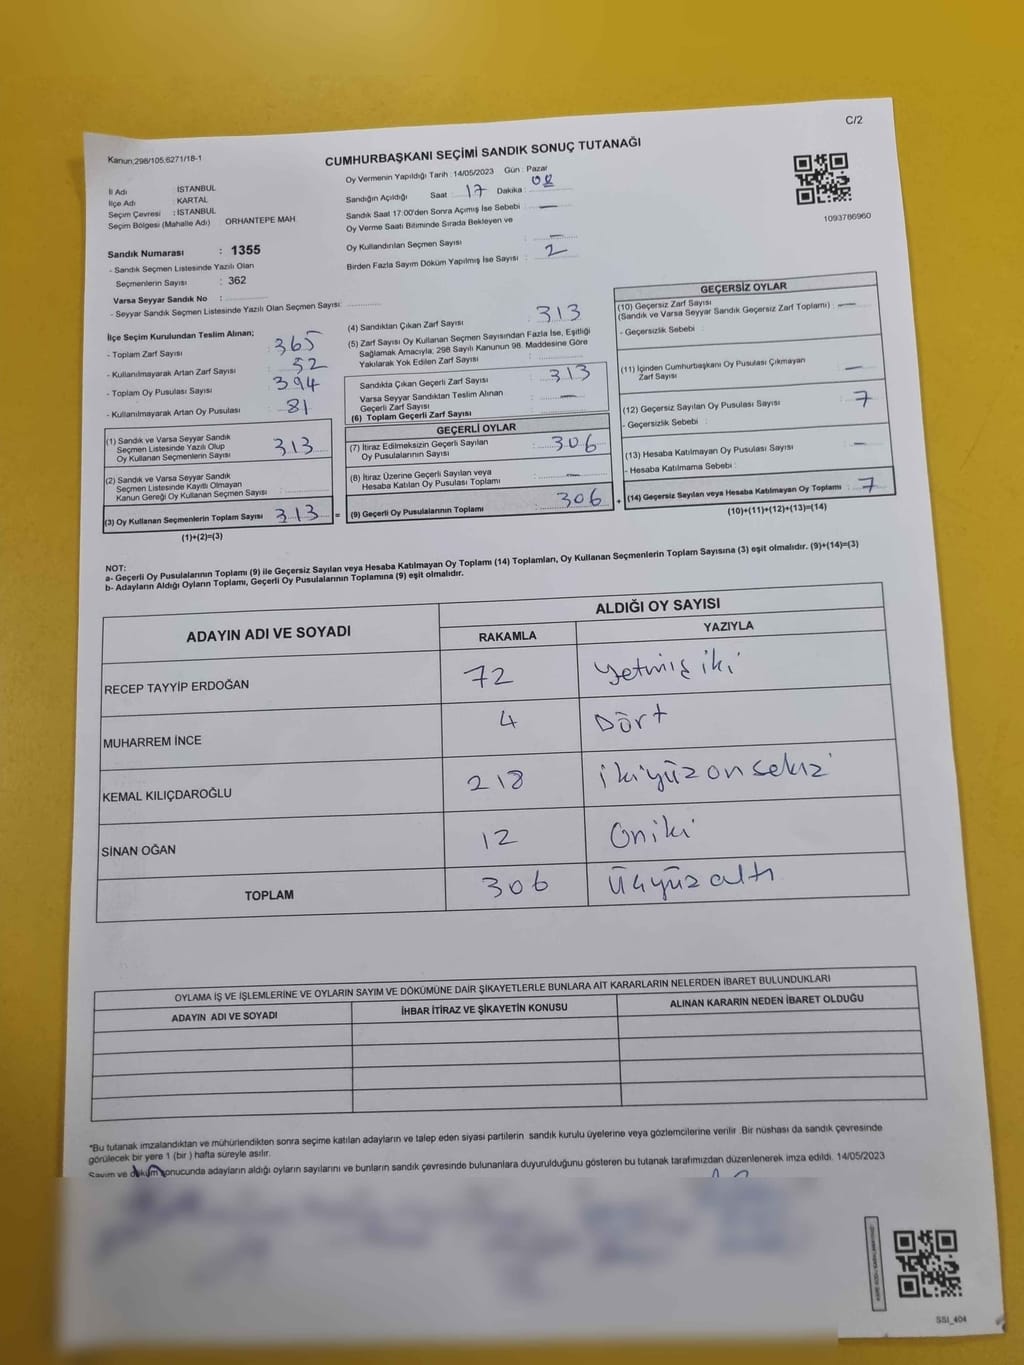 C/2
Kanun;298/105;6271/18-1
CUMHURBAŞKANI SEÇİMİ SANDIK SONUÇ TUTANAĞI
İl Adı : İSTANBUL
İlçe Adı : KARTAL
Seçim Çevresi : İSTANBUL
Seçim Bölgesi (Mahalle Adı) : ORHANTEPE MAH
Sandık Numarası : 1355
- Sandık Seçmen Listesinde Yazılı Olan
Seçmenlerin Sayısı : 362
Varsa Seyyar Sandık No :
- Seyyar Sandık Seçmen Listesinde Yazılı Olan Seçmen Sayısı:
Oy Vermenin Yapıldığı Tarih : 14/05/2023 Gün : Pazar
Sandığın Açıldığı Saat : 17 Dakika : 08
Sandık Saat 17:00'den Sonra Açımış İse Sebebi : —
Oy Verme Saati Bitiminde Sırada Bekleyen ve
Oy Kullandırılan Seçmen Sayısı : —
Birden Fazla Sayım Döküm Yapılmış İse Sayısı : 2
1093786960
İlçe Seçim Kurulundan Teslim Alınan;
- Toplam Zarf Sayısı : 365
- Kullanılmayarak Artan Zarf Sayısı : 52
- Toplam Oy Pusulası Sayısı : 394
- Kullanılmayarak Artan Oy Pusulası : 81
(1) Sandık ve Varsa Seyyar Sandık
Seçmen Listesinde Yazılı Olup
Oy Kullanan Seçmenlerin Sayısı : 313
(2) Sandık ve Varsa Seyyar Sandık
Seçmen Listesinde Kayıtlı Olmayan
Kanun Gereği Oy Kullanan Seçmen Sayısı :
(3) Oy Kullanan Seçmenlerin Toplam Sayısı : 313 =
(1)+(2)=(3)
(4) Sandıktan Çıkan Zarf Sayısı : 313
(5) Zarf Sayısı Oy Kullanan Seçmen Sayısından Fazla İse, Eşitliği
Sağlamak Amacıyla, 298 Sayılı Kanunun 98. Maddesine Göre
Yakılarak Yok Edilen Zarf Sayısı :
Sandıkta Çıkan Geçerli Zarf Sayısı : 313
Varsa Seyyar Sandıktan Teslim Alınan
Geçerli Zarf Sayısı : —
(6) Toplam Geçerli Zarf Sayısı :
GEÇERLİ OYLAR
(7) İtiraz Edilmeksizin Geçerli Sayılan
Oy Pusulalarının Sayısı : 306
(8) İtiraz Üzerine Geçerli Sayılan veya
Hesaba Katılan Oy Pusulası Toplamı : —
(9) Geçerli Oy Pusulalarının Toplamı : 306 +
GEÇERSİZ OYLAR
(10) Geçersiz Zarf Sayısı
(Sandık ve Varsa Seyyar Sandık Geçersiz Zarf Toplamı) : —
- Geçersizlik Sebebi :
(11) İçinden Cumhurbaşkanı Oy Pusulası Çıkmayan
Zarf Sayısı : —
(12) Geçersiz Sayılan Oy Pusulası Sayısı : 7
- Geçersizlik Sebebi :
(13) Hesaba Katılmayan Oy Pusulası Sayısı : —
- Hesaba Katılmama Sebebi :
(14) Geçersiz Sayılan veya Hesaba Katılmayan Oy Toplamı : 7
(10)+(11)+(12)+(13)=(14)
NOT:
a- Geçerli Oy Pusulalarının Toplamı (9) ile Geçersiz Sayılan veya Hesaba Katılmayan Oy Toplamı (14) Toplamları, Oy Kullanan Seçmenlerin Toplam Sayısına (3) eşit olmalıdır. (9)+(14)=(3)
b- Adayların Aldığı Oyların Toplamı, Geçerli Oy Pusulalarının Toplamına (9) eşit olmalıdır.
ADAYIN ADI VE SOYADI ALDIĞI OY SAYISI
RAKAMLA YAZIYLA
RECEP TAYYİP ERDOĞAN 72 Yetmiş iki
MUHARREM İNCE 4 Dört
KEMAL KILIÇDAROĞLU 218 ikiyüz on sekiz
SİNAN OĞAN 12 Oniki
TOPLAM 306 Üçyüz altı
OYLAMA İŞ VE İŞLEMLERİNE VE OYLARIN SAYIM VE DÖKÜMÜNE DAİR ŞİKAYETLERLE BUNLARA AİT KARARLARIN NELERDEN İBARET BULUNDUKLARI
ADAYIN ADI VE SOYADI İHBAR İTİRAZ VE ŞİKAYETİN KONUSU ALINAN KARARIN NEDEN İBARET OLDUĞU
*Bu tutanak imzalandıktan ve mühürlendikten sonra seçime katılan adayların ve talep eden siyasi partilerin sandık kurulu üyelerine veya gözlemcilerine verilir .Bir nüshası da sandık çevresinde
görülecek bir yere 1 (bir ) hafta süreyle asılır.
Sayım ve döküm sonucunda adayların aldığı oyların sayılarını ve bunların sandık çevresinde bulunanlara duyurulduğunu gösteren bu tutanak tarafımızdan düzenlenerek imza edildi. 14/05/2023
SSI_404